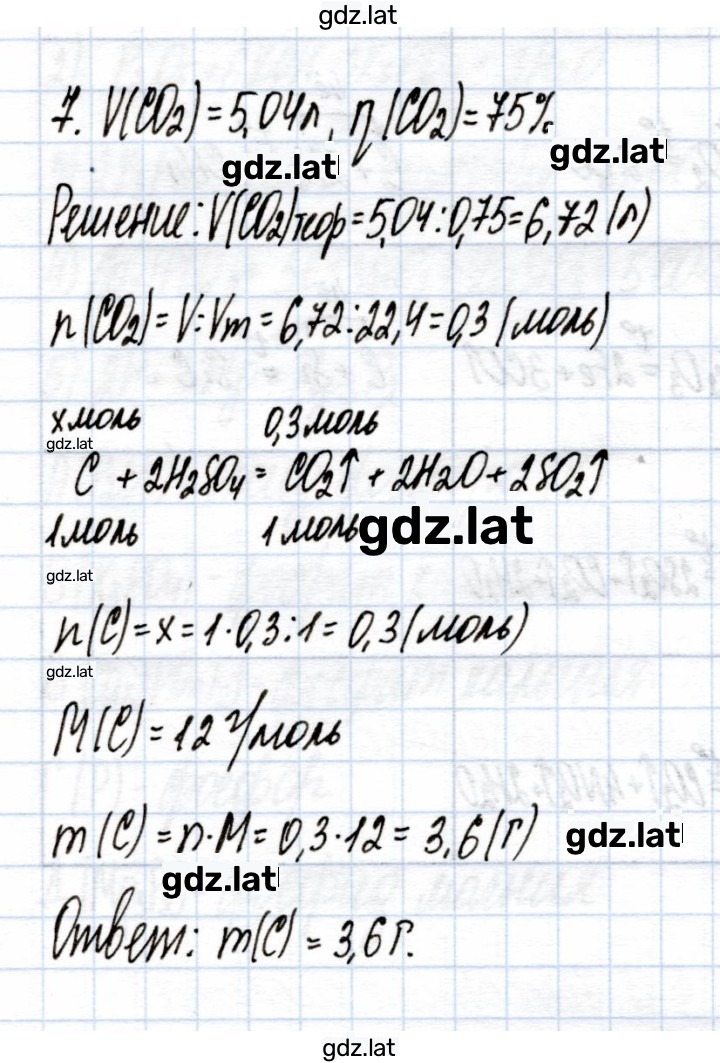 gdz.lat
7. V(CO₂) = 5,04 л, η(CO₂) = 75%
gdz.lat gdz.lat
Решение: V(CO₂)теор = 5,04 : 0,75 = 6,72 (л)
n(CO₂) = V : Vm = 6,72 : 22,4 = 0,3 (моль)
x моль 0,3 моль
gdz.lat
C + 2H₂SO₄ = CO₂↑ + 2H₂O + 2SO₂↑
1 моль 1 моль gdz.lat
gdz.lat
n(C) = x = 1 · 0,3 : 1 = 0,3 (моль)
gdz.lat
M(C) = 12 г/моль
m(C) = n · M = 0,3 · 12 = 3,6 (г) gdz.lat
gdz.lat
Ответ: m(C) = 3,6 г.
gdz.lat